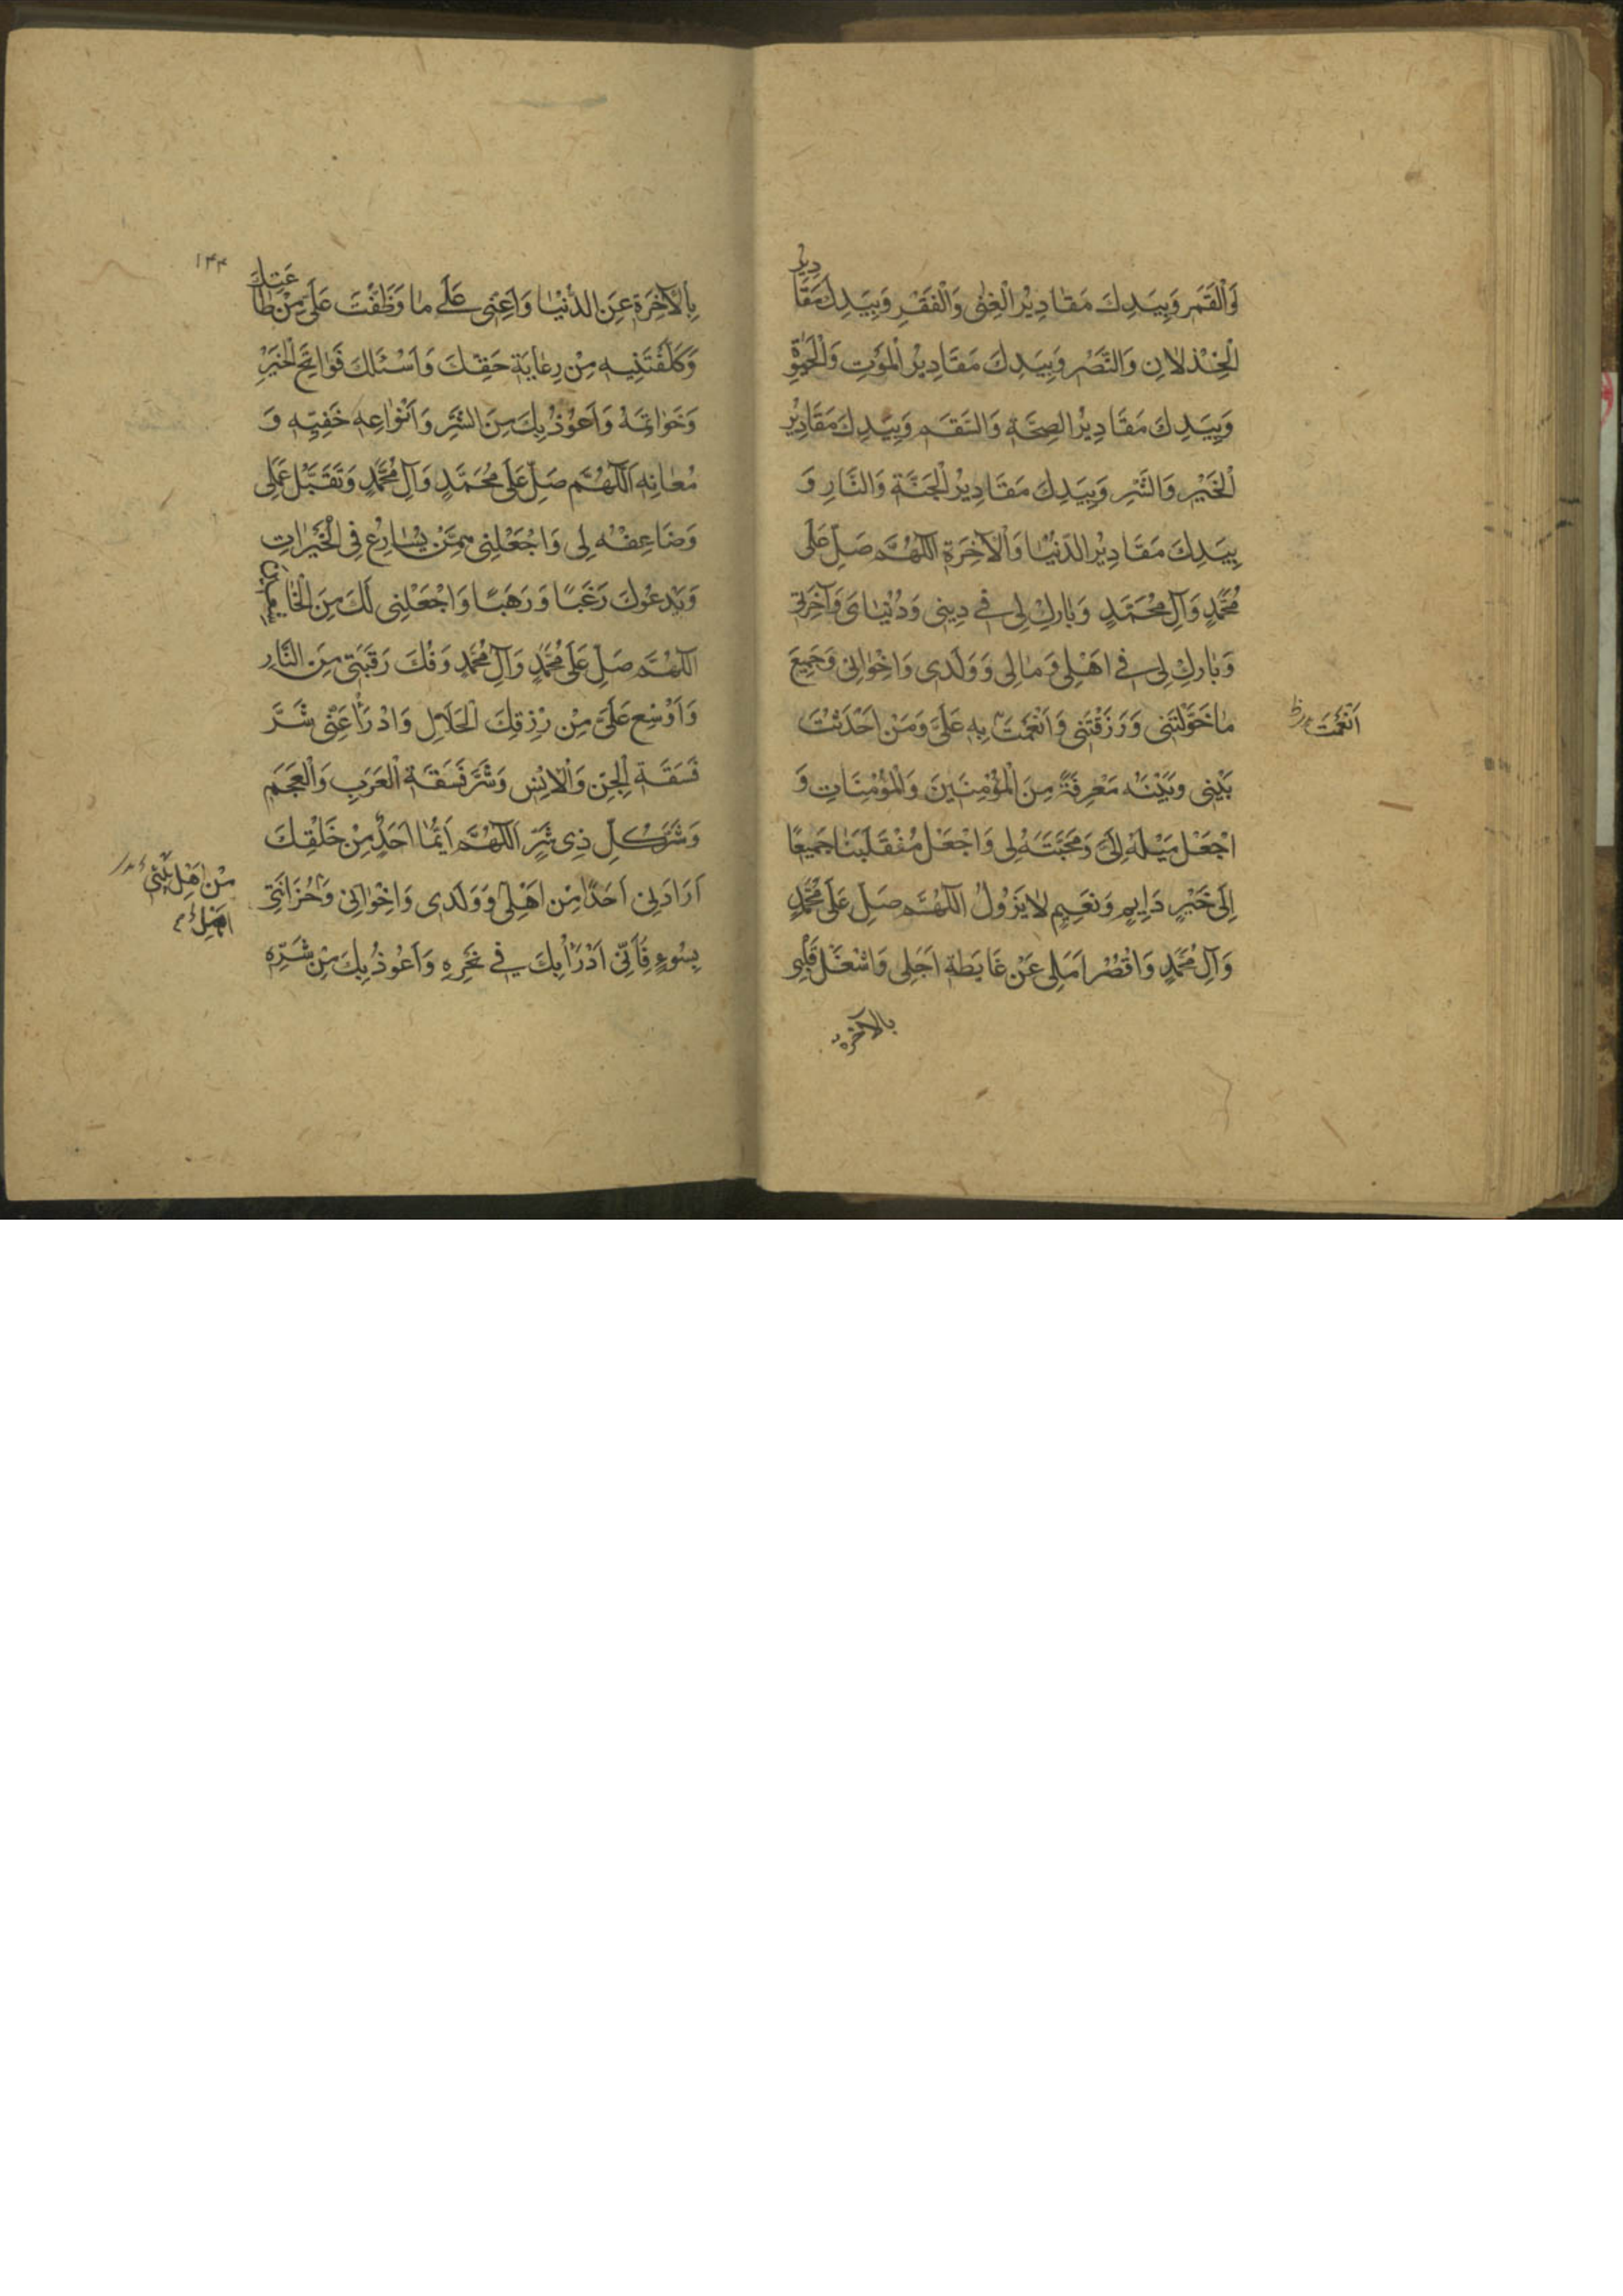 وَالْقَمَرِ وَبِيَدِكَ مَقٰادِيْرُ الْغِنٰى وَالْفَقْرِ وَبِيَدِكَ مَقَادِيرُ
الْخِذْلانِ وَالنَّصْرِ وَبِيَدِكَ مَقَادِيْرُ الْمَوْتِ وَالْحَيٰوةِ
وَبِيَدِكَ مَقَادِيْرُ الصِحَّةِ وَالسَقَمِ وَبِيَدِكَ مَقَادِيْرُ
الْخَيْرِ وَالشَّرِ وَبِيَدِكَ مَقَادِيْرُ الْجَنَّةِ وَالنَّارِ وَ
بِيَدِكَ مَقَادِيْرُ الدُنْيٰا وَالْآخِرَةِ اللّٰهُمَّ صَلِّ عَلٰى
مُحَمَّدٍ وَآلِ مُحَمَّدٍ وَبٰارِكْ لِى فِى دِينِى وَدُنْيٰاىَ وَآخِرَتِى
وَبٰارِكْ لِى فِى اَهْلِى وَمٰالِى وَوَلَدِى وَاِخْوٰانِى وَجَمِيعَ
مٰا خَوَّلْتَنِى وَرَزَقْتَنِى وَاَنْعَمْتَ بِهِ عَلَىَّ وَمَنْ اَحْدَثْتَ
اَنْعَمْتَ
بَيْنِى وَبَيْنَهُ مَعْرِفَةً مِنَ الْمُؤْمِنِينَ وَالْمُؤْمِنَاتِ وَ
اجْعَلْ مَيْلَهُ اِلَىَّ وَمَحَبَّتَهُ لِى وَاجْعَلْ مُنْقَلَبَنَا جَمِيعًا
اِلَى خَيْرٍ دَايِمٍ وَنَعِيمٍ لايَزُولُ اللّٰهُمَّ صَلِّ عَلَى مُحَمَّدٍ
وَآلِ مُحَمَّدٍ وَاقْصُرْ اَمَلِى عَنْ غَايَةِ اَجَلِى وَاشْغَلْ قَلْبِى
بالآخرة
١٤٤
بِالْآخِرَةِ عَنِ الدُّنْيٰا وَاَعِنِّى عَلٰى مٰا وَظَّفْتَ عَلَىَّ مِنْ طٰاعَتِكَ
وَكَلَّفْتَنِيهِ مِنْ رِعٰايَةِ حَقِّكَ وَاَسْئَلُكَ فَوٰاتِحَ الْخَيْرِ
وَخَوٰاتِمَهُ وَاَعُوْذُ بِكَ مِنَ الشَّرِّ وَاَنْوٰاعِهِ خَفِيِّهِ وَ
مُعْلَنِهِ اَللّٰهُمَّ صَلِّ عَلَى مُحَمَّدٍ وَآلِ مُحَمَّدٍ وَتَقَبَّلْ عَمَلِى
وَضَاعِفْهُ لِى وَاجْعَلْنِى مِمَّنْ يُسٰارِعُ فِى الْخَيْرٰاتِ
وَيَدْعُوكَ رَغَبًا وَرَهَبًا وَاجْعَلْنِى لَكَ مِنَ الْخٰاشِعِينَ
اللّٰهُمَّ صَلِّ عَلَى مُحَمَّدٍ وَآلِ مُحَمَّدٍ وَفُكَّ رَقَبَتِى مِنَ النَّارِ
وَاَوْسِعْ عَلَىَّ مِنْ رِزْقِكَ الْحَلَالِ وَادْرَأْ عَنِّى شَرَّ
فَسَقَةِ الْجِنِّ وَالْاِنْسِ وَشَرَّ فَسَقَةِ الْعَرَبِ وَالْعَجَمِ
وَشَرَّ كُلِّ ذِى شَرٍّ اَللّٰهُمَّ اَيُّمٰا اَحَدٍ مِنْ خَلْقِكَ
اَرَادَنِى اَحَدًا مِنْ اَهْلِى وَوَلَدِى وَاِخْوٰانِى وَحُزَانَتِى
مِنْ اَهْلِ بَيْتِى
بِسُوءٍ فَاِنِّى اَدْرَأُ بِكَ فِى نَحْرِهِ وَاَعُوذُ بِكَ مِنْ شَرِّهِ